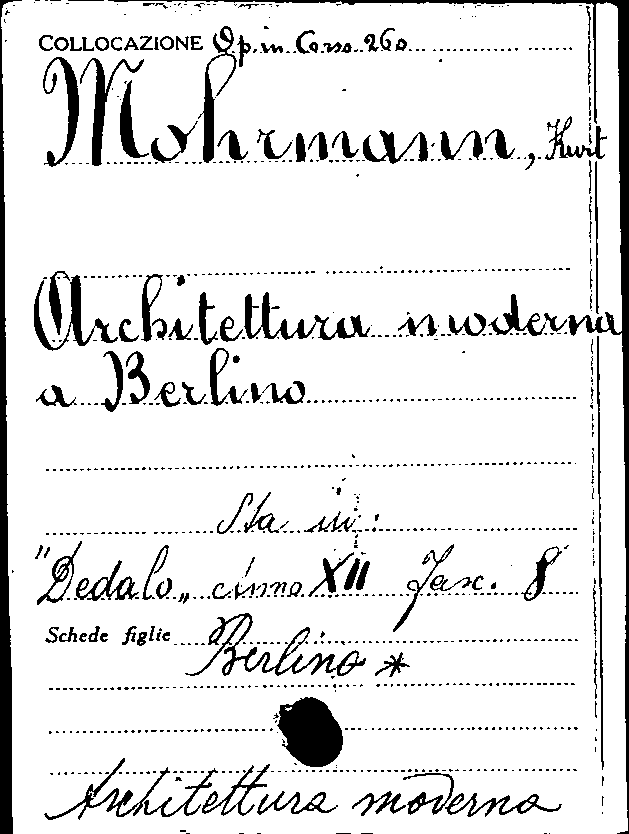 COLLOCAZIONE Op. in Corso 260
Mohrmann, Kurt
Architettura moderna
a Berlino
Sta in:
"Dedalo„ anno XII Fasc. 8
Schede figlie
Berlino *
Architettura moderna